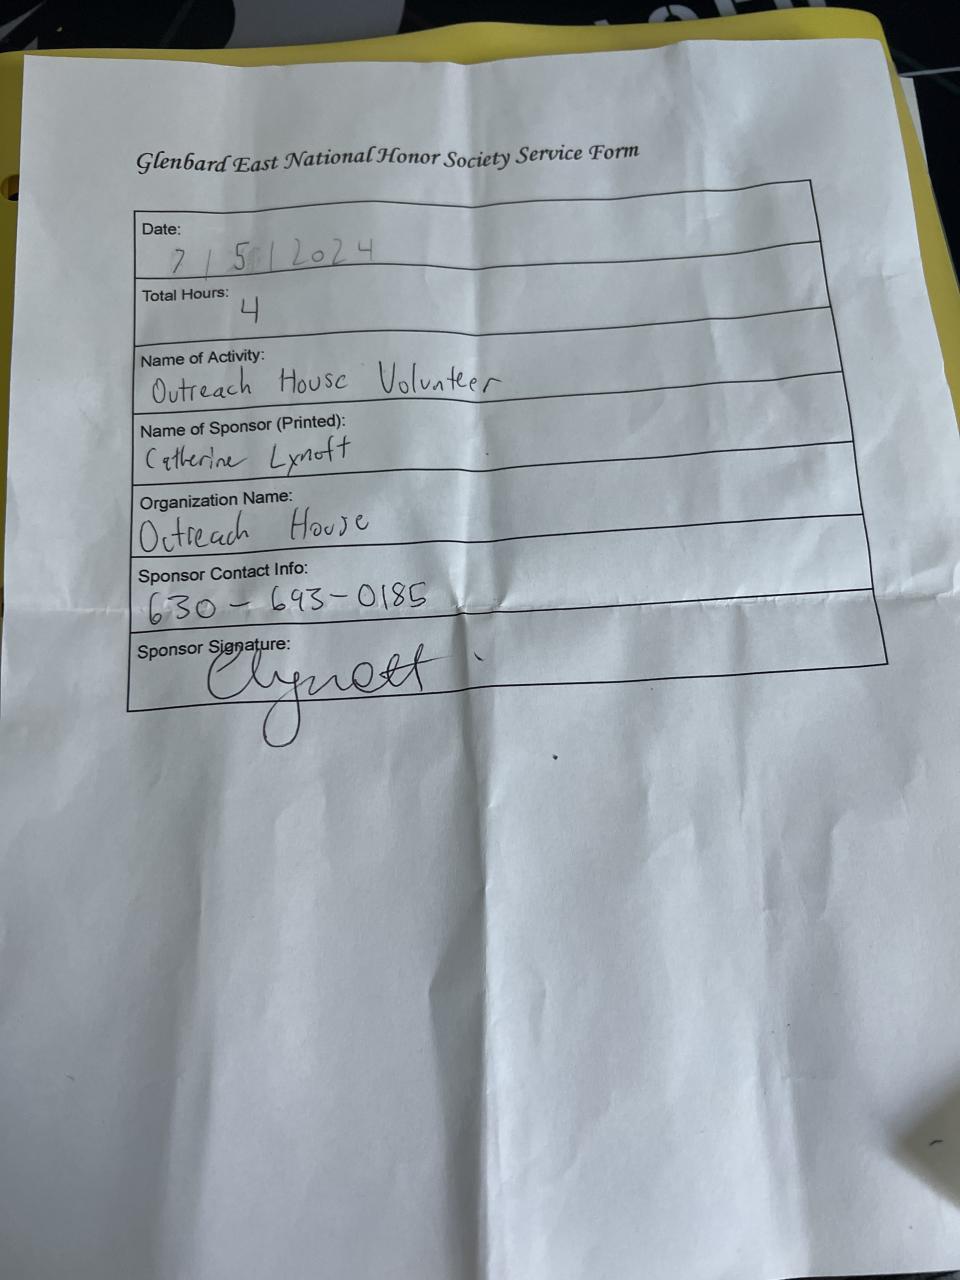 Glenbard East National Honor Society Service Form
Date:
7/5/2024
Total Hours:
4
Name of Activity:
Outreach House Volunteer
Name of Sponsor (Printed):
Catherine Lynott
Organization Name:
Outreach House
Sponsor Contact Info:
630-693-0185
Sponsor Signature:
Clynott